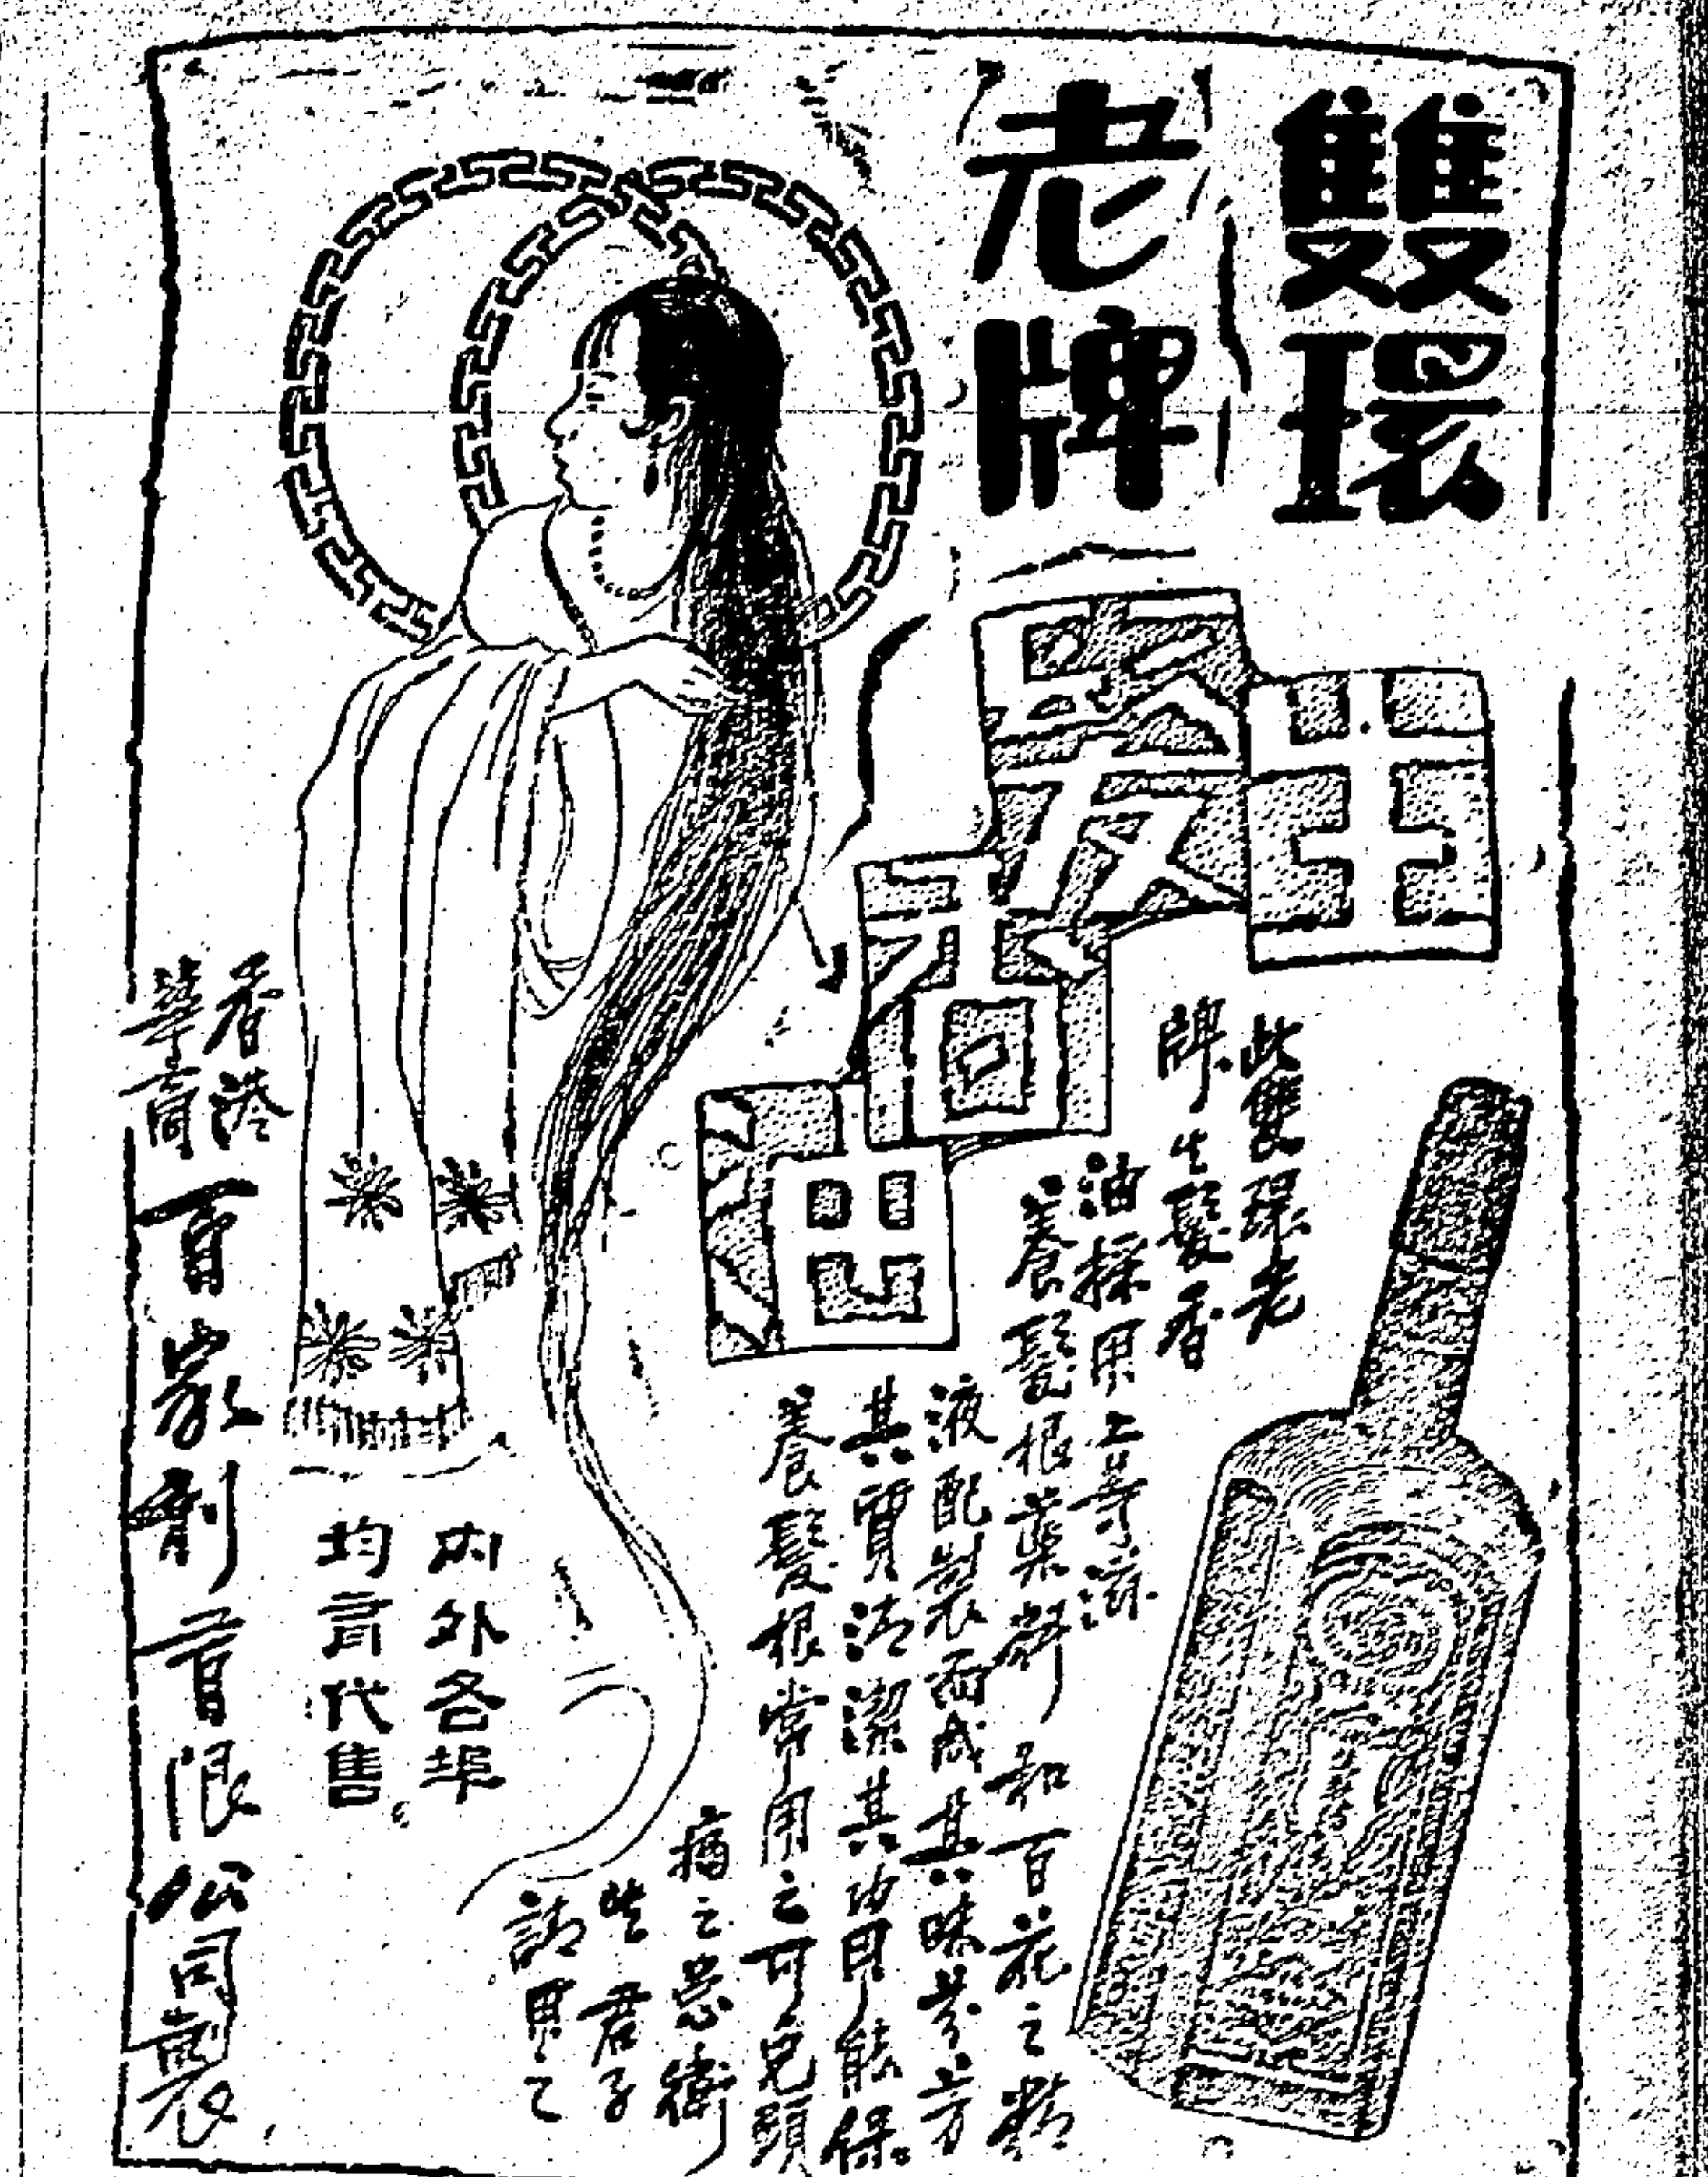 雙環
老牌
生髮香油
此雙環老
牌生髮香
油採用上等滋
養髮根藥劑和百花之精
液配製而成其味芬芳
其質清潔其功用能保
養髮根常用之可免頭
痛之患衛
生君子
請用之
內外各埠
均有代售
香港
華商
百家利有限公司製